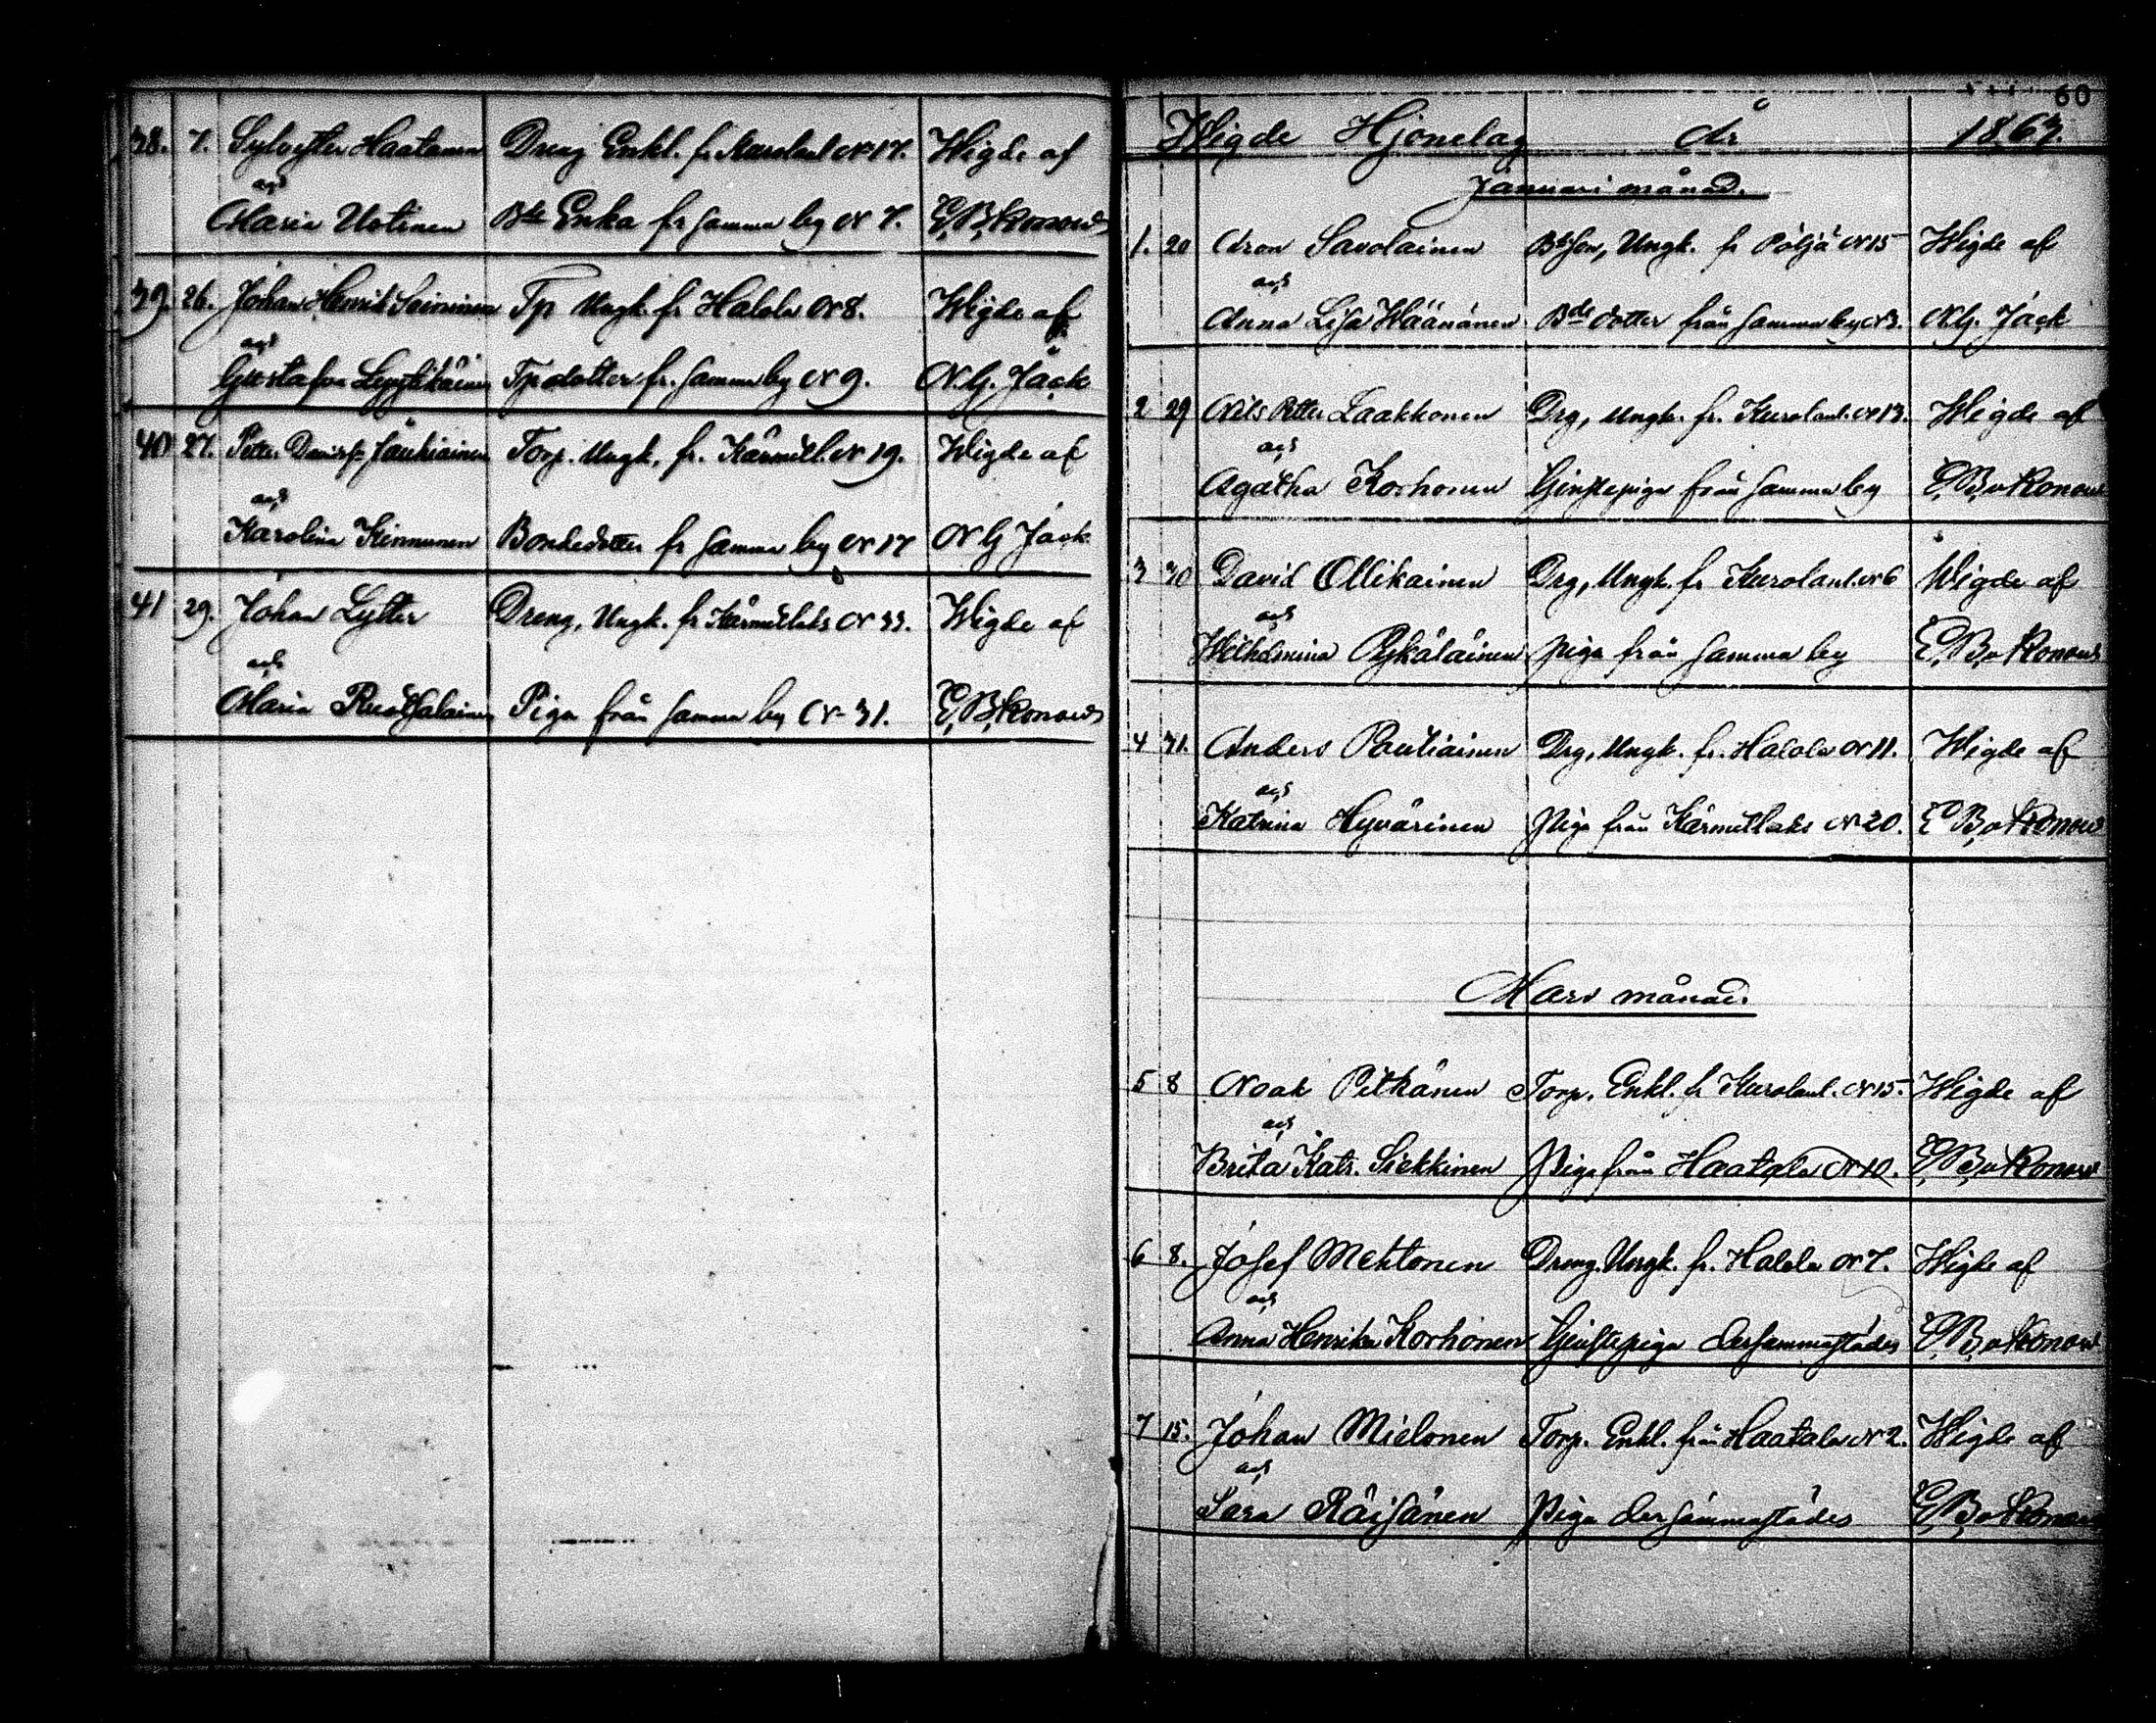 38. 7. Sylvester Haatanen Dreng Enkl. fr. Kurolanl. N 17. Wigde af
och
Maria Uotinen Bde Enka fr samma by N 7. E. B. v Konow
39. 26. Johan Henrik Soininen Tp Ungk. fr Halola N 8. Wigde af
och
Gustafva Lyytikäinen Tpdotter fr. samma by N 9. N. G. Jack
40 27. Petter Jauhiainen Torp. Ungk. fr. Kärmetl. N 19. Wigde af
och
Karolina Kinnunen Bondedotter fr samma by N 17 N G Jack
41 29. Johan Lytter Dreng, Ungk. fr Kärmetlaks N 33. Wigde af
och
Maria Ruotsalainen Piga från samma by N 31. E. B. v Konow
60
Wigde Hjonelag År 1863.
Januari månad.
1. 20 Aron Savolainen Bdeson, Ungk. fr Pöljä N 15 Wigde af
och
Anna Lisa Wäänänen Bde dotter från samma by N 3. N. G. Jack
2 29 Nils Petter Laakkonen Drg, Ungk. fr. Kurolanl. N 13. Wigde af
och
Agatha Korhonen tjenstepiga från samma by E. B. v Konow
3 30 David Ollikainen Drg, Ungk. fr Kurolanl. N 6 Wigde af
och
Wilhelmina Pykäläinen piga från samma by E. B. v Konow
4 31. Anders Rautiainen Drg, Ungk. fr. Halola N 11. Wigde af
och
Katrina Hyvärinen Piga från Kärmetlaks N 20. E B. v Konow
Mars månad.
5 8 Noak Pitkänen Torp. Enkl. fr Kurolanl. N 15. Wigde af
och
Brita Katr. Siekkinen Piga från Haatala N 10. E. B. v Konow
6 8. Josef Mehtonen Dreng. Ungk. fr. Halola N 7. Wigde af
och
Anna Henrika Korhonen tjenstepiga dersammastädes E. B. v Konow
7 15. Johan Mielonen Torp. Enkl. från Haatala N 2. Wigde af
och
Sara Räisänen Piga dersammastädes E. B. v Konow